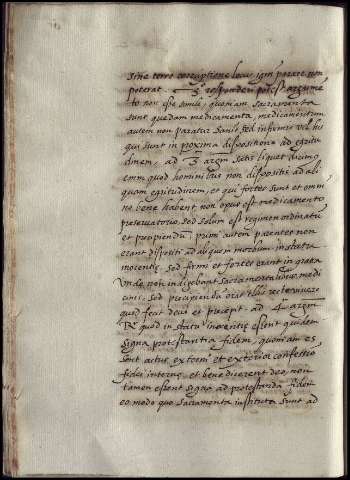 sine vero corruptione locus igni parare non
poterat. Responderi potest argume
to non esse simile, quoniam sacramenta
sunt quedam medicamenta, medicamentum
autem non paratur sanis sed infirmis vel his
qui sunt in proxima dispositione ad egritu
dinem, ad 3 argm liquet
enim quod hominibus non dispositis ad ali
quam egritudinem, et qui fortes sunt et omni
no bene habent non opus est medicamento
preservatorio sed solum est regimen ordinatiu
et precipiendu primi autem parentes non
erant dispositi ad aliquem morbum in statu
inocentie, sed firmi et fortes erant in gratia
Unde non indigebant sacramentalibus medi
cinis, sed precipienda erat illis recte vivere
quod fecit deus et precepit. ad 4 argm
R quod in statu inocentie essent quidem
signa protestantia fidem, quoniam es
sent actus externi et exterior confessio
fidei interne, et benedicerent deo, non
tamen essent signa ad protestanda fidem
eo modo quo sacramenta instituta sunt ad